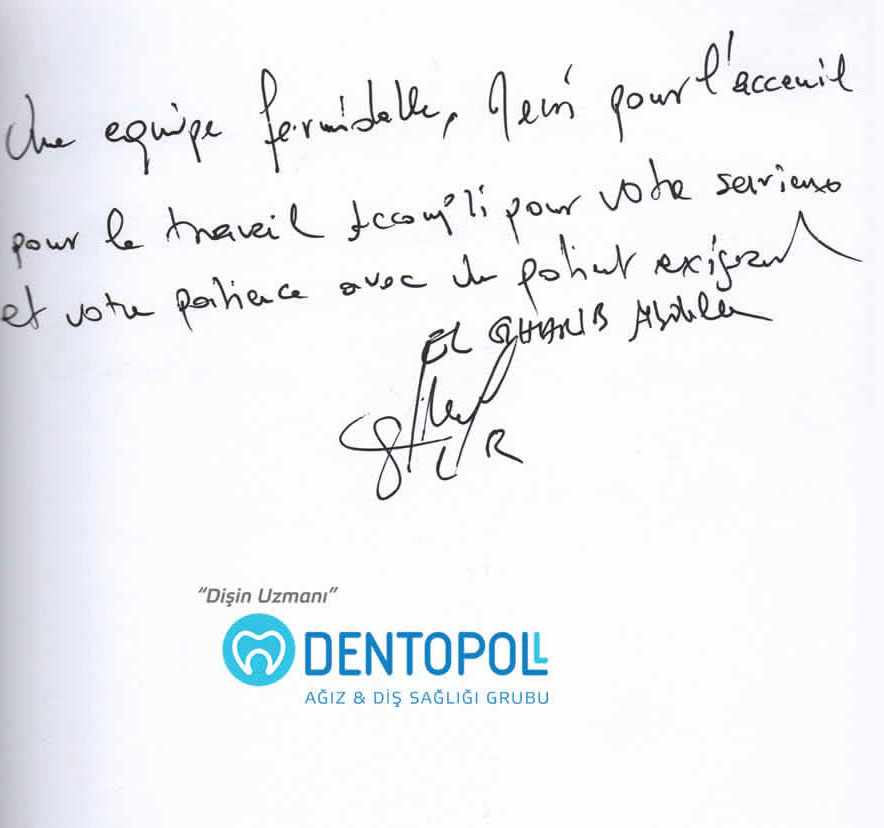 Une equipe formidable, Merci pour l'acceuil
pour le travail accompli pour votre serieux
et votre patience avec un patient exigeant
EL GHARIB
"Dişin Uzmanı"
DENTOPOLL
AĞIZ & DİŞ SAĞLIĞI GRUBU